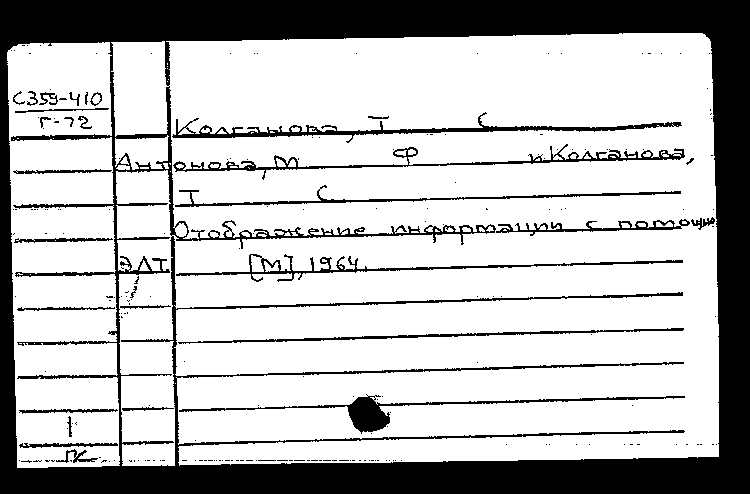 С359-410
Г-72
Колганова, Т С
Антонова, М Ф и Колганова,
Т С
Отображение информации с помощью
ЭЛТ. [М], 1964.